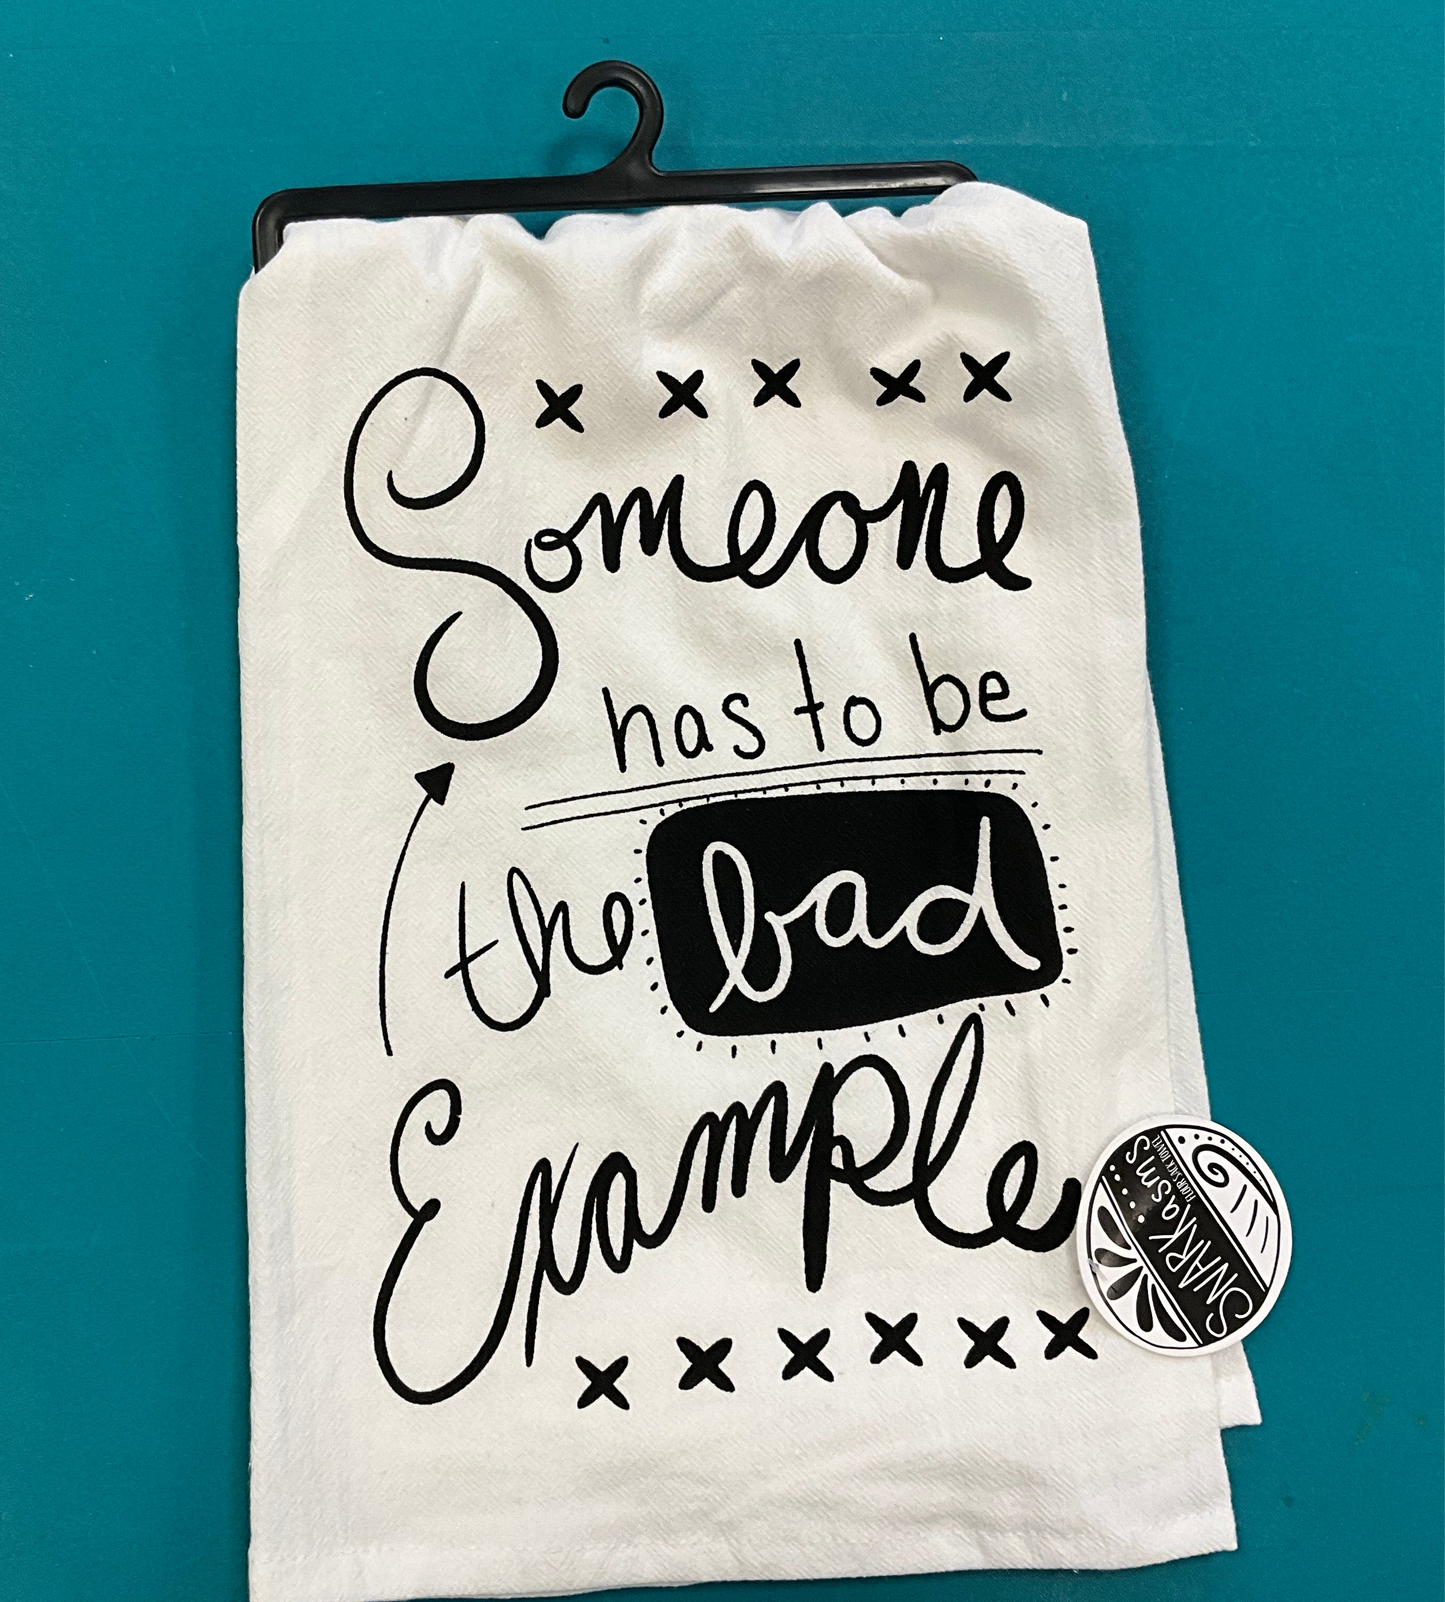 Someone
has to be
the bad
Example
SNARKasms
FLOUR SACK TOWEL